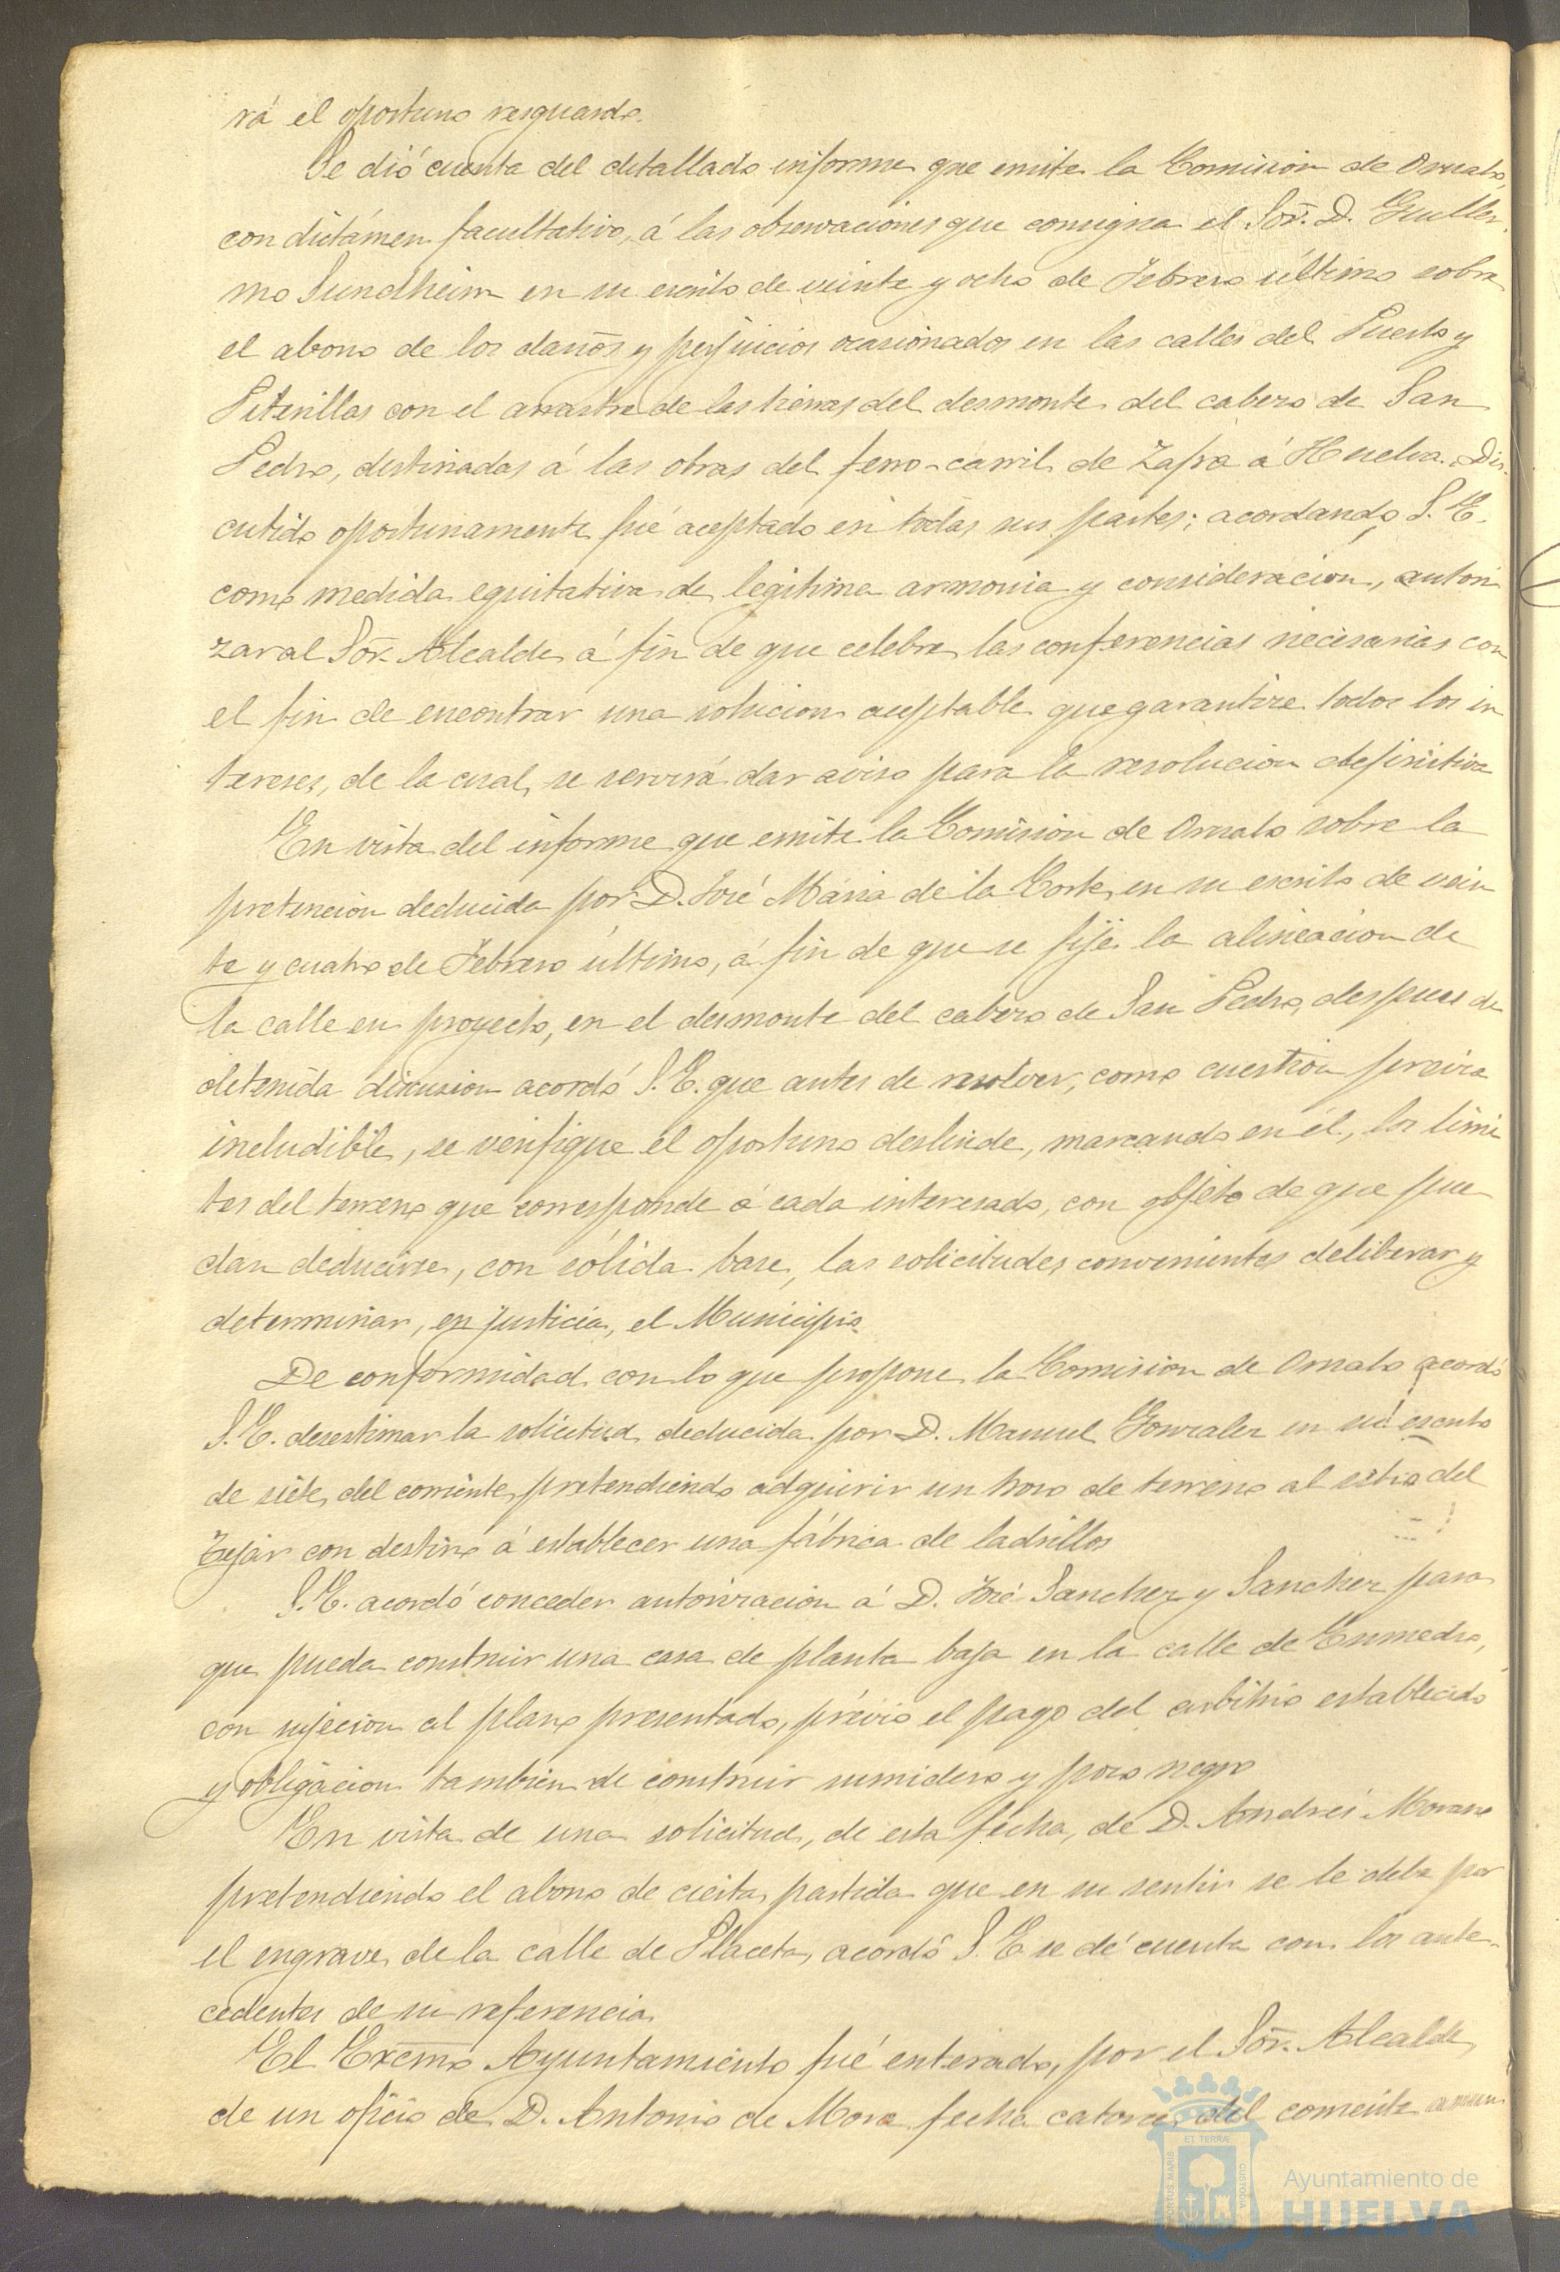 rá el oportuno resguardo.
Se dió cuenta del detallado informe que emite la Comision de Ornato,
con dictámen facultativo, á las observaciones que consigna el Sor. D. Guiller-
mo Sundheim en su escrito de veinte y ocho de Febrero último sobre
el abono de los daños y perjuicios ocasionados en las calles del Puerto y
Peterillas con el arrastre de las tierras del desmonte del cabezo de San
Pedro, destinadas á las obras del ferro-carril de Zafra á Huelva. Dis-
cutido oportunamente fué aceptado en todas sus partes; acordando S. E.
como medida equitativa de legitima armonia y consideracion, autori
zar al Sor. Alcalde á fin de que celebre las conferencias necesarias con
el fin de encontrar una solucion aceptable que garantize todos los in
tereses, de la cual, se servirá dar aviso para la resolucion definitiva
En vista del informe que emite la Comision de Ornato sobre la
pretencion deducida por D. José Maria de la Corte, en su escrito de vein
te y cuatro de Febrero último, á fin de que se fije la alineacion de
la calle en proyecto, en el desmonte del cabezo de San Pedro, despues de
detenida discusion acordó S. E. que antes de resolver, como cuestion previa
includible, se verifique el oportuno deslinde, marcando en él, los limi
tes del terreno que corresponde á cada interesado, con objeto de que pue
dan deducirse, con sólida base, las solicitudes convenientes deliberar y
determinar, en justicia, el Municipio.
De conformidad con lo que propone la Comision de Ornato acordó
S. E. desestimar la solicitud deducida por D. Manuel Gonzalez en su escrito
de siete del corriente pretendiendo adquirir un trozo de terreno al sitio del
Tejar con destino á establecer una fábrica de ladrillos
S. E. acordó conceder autorizacion á D. José Sanchez y Sanchez para
que pueda construir una casa de planta baja en la calle de Enmedio,
con sujecion al plano presentado, prévio el pago del arbitrio establecido
y obligacion tambien de construir sumidero y pozo negro
En vista de una solicitud, de esta fecha, de D. Andrés Morano
pretendiendo el abono de cierta partida que en su sentir se le debe por
el engrave de la calle de Placeta, acordó S. E. se dé cuenta con los ante-
cedentes de su referencia.
El Excmo Ayuntamiento fué enterado, por el Sor. Alcalde,
de un oficio de D. Antonio de Mora fecha catorce del corriente anun
PORTUS MARIS ET TERRÆ CUSTODIA
Ayuntamiento de
HUELVA